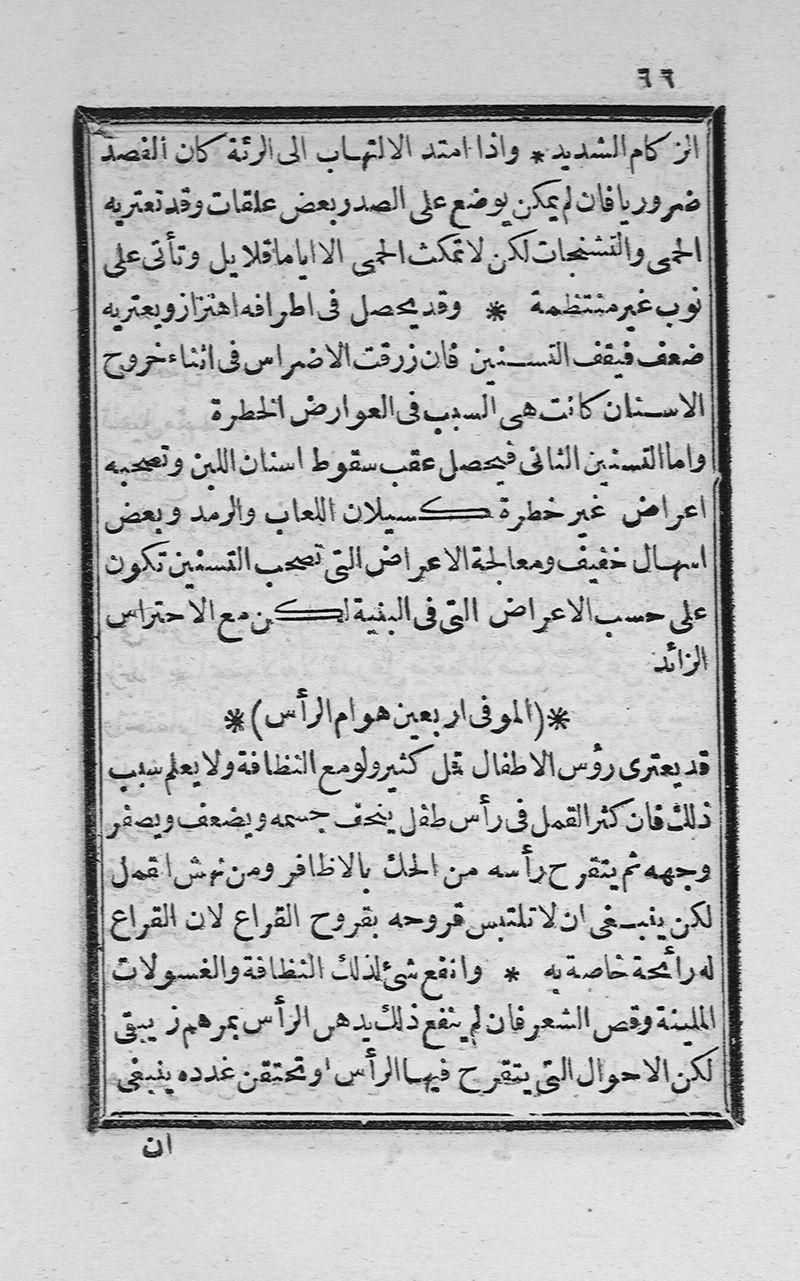 ٦٦
الزكام الشديد * واذا امتد الالتهاب الى الرئة كان الفصد
ضروريا فان لم يمكن يوضع على الصدر بعض علقات وقد تعتريه
الحمى والتشنجات لكن لا تمكث الحمى الا اياما قلايل وتأتى على
نوب غير منتظمة * وقد يحصل فى اطرافه اهتزاز ويعتريه
ضعف فيقف التسنين فان زرقت الاضراس فى اثناء خروج
الاسنان كانت هى السبب فى العوارض الخطرة
واما التسنين الثانى فيحصل عقب سقوط اسنان اللبن وتصحبه
اعراض غير خطرة كسيلان اللعاب والرمد وبعض
اسهال خفيف ومعالجة الاعراض التى تصحب التسنين تكون
على حسب الاعراض التى فى البنية لكن مع الاحتراس
الزائد
*(الموفى اربعين هوام الرأس)*
قد يعترى رؤس الاطفال قمل كثير ولو مع النظافة ولا يعلم سبب
ذلك فان كثر القمل فى رأس طفل ينحف جسمه ويضعف ويصفر
وجهه ثم يتقرح رأسه من الحك بالاظافر ومن نهش القمل
لكن ينبغى ان لا تلتبس قروحه بقروح القراع لان القراع
له رائحة خاصة به * وانفع شئ لذلك النظافة والغسولات
الملينة وقص الشعر فان لم ينفع ذلك يدهن الرأس بمرهم زيبقى
لكن الاحوال التى يتقرح فيها الرأس او تحتقن غدده ينبغى
ان